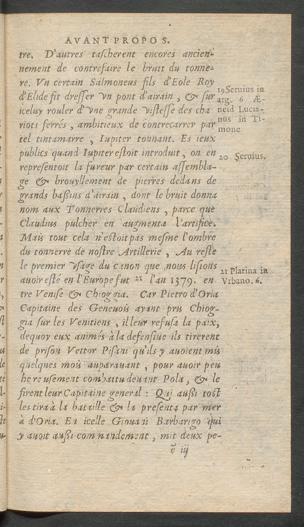 AVANT PROPOS.
tre. D'autres tascherent encores ancien-
nement de contrefaire le bruit du tonne-
re. Vn certain Salmoneus fils d'Eole Roy
d'Elide fit dresser vn pont d'airain, & sur
iceluy rouler d'vne grande vistesse des cha
riots ferrés, ambitieux de contrecarrer par
tel tintamarre, Iupiter tonnant. Es ieux
publics quand Iupiter estoit introduit, on en
representoit la fureur par certain assembla-
ge & brouyllement de pierres dedans de
grands bassins d'airain, dont le bruit donna
nom aux Tonnerres Claudiens, parce que
Claudius pulcher en augmenta l'artifice.
Mais tout cela n'estoit pas mesme l'ombre
du tonnerre de nostre Artillerie, Au reste
le premier vsage du canon que nous lisons
auoir esté en l'Europe fut 21 l'an 1379. en
tre Venise & Chioggia. Car Pietro d'Oria
Capitaine des Geneuois ayant pris Chiog-
gia sur les Venitiens, illeur refusa la paix,
dequoy eux animés à la defensiue ils tirerent
de prison Vettor Pisani qu'ils y auoient mis
quelques mois auparauant, pour auoir peu
heureusement combattu deuant Pola, & le
firent leur Capitaine general: Qui aussi tost
les tira à la bataille & la presenta par mer
à d'Oria. En icelle Giouani Barbarigo qui
y auoit aussi commandement, mit deux pe-
é iij
19 Seruius in
arg. 6 Æ-
neid Lucia-
nus in Ti-
mone
20 Seruius.
21 Platina in
Vrbano. 6.